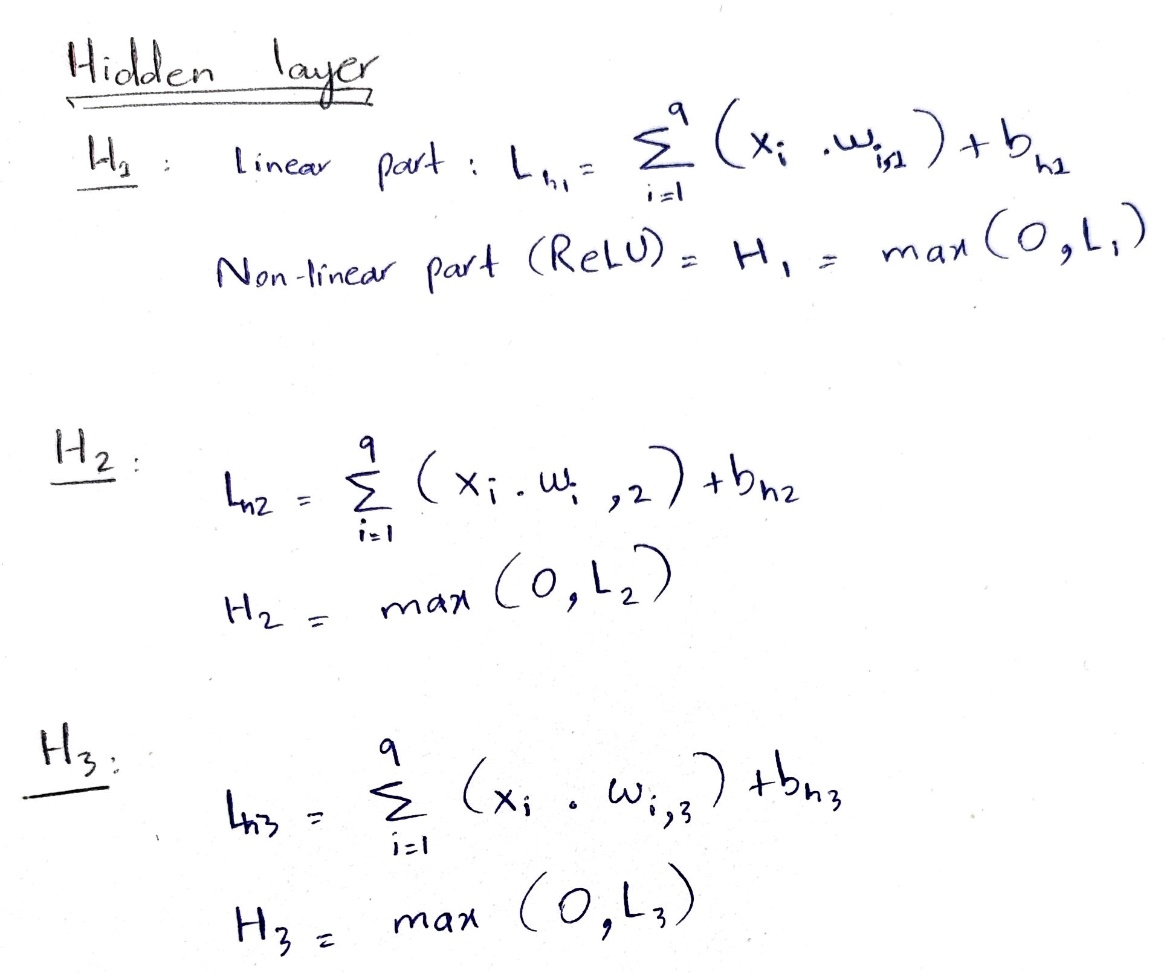 Hidden layer
H₁ : Linear part : L_h₁ = Σ_{i=1}^{9} (x_i . w_{i,1}) + b_{h1}
Non-linear part (ReLU) = H₁ = max (0, L₁)
H₂ : L_{h2} = Σ_{i=1}^{9} (x_i . w_{i,2}) + b_{h2}
H₂ = max (0, L₂)
H₃ : L_{h3} = Σ_{i=1}^{9} (x_i . w_{i,3}) + b_{h3}
H₃ = max (0, L₃)